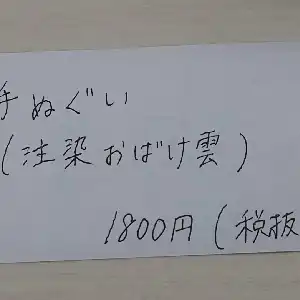 手ぬぐい
(注染おばけ雲)
1800円(税抜